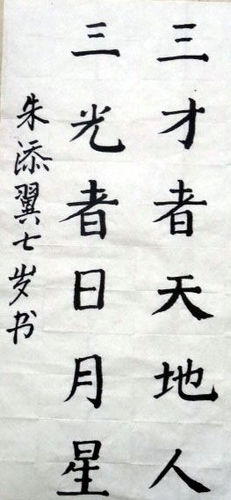 三才者天地人
三光者日月星
朱添翼七岁书